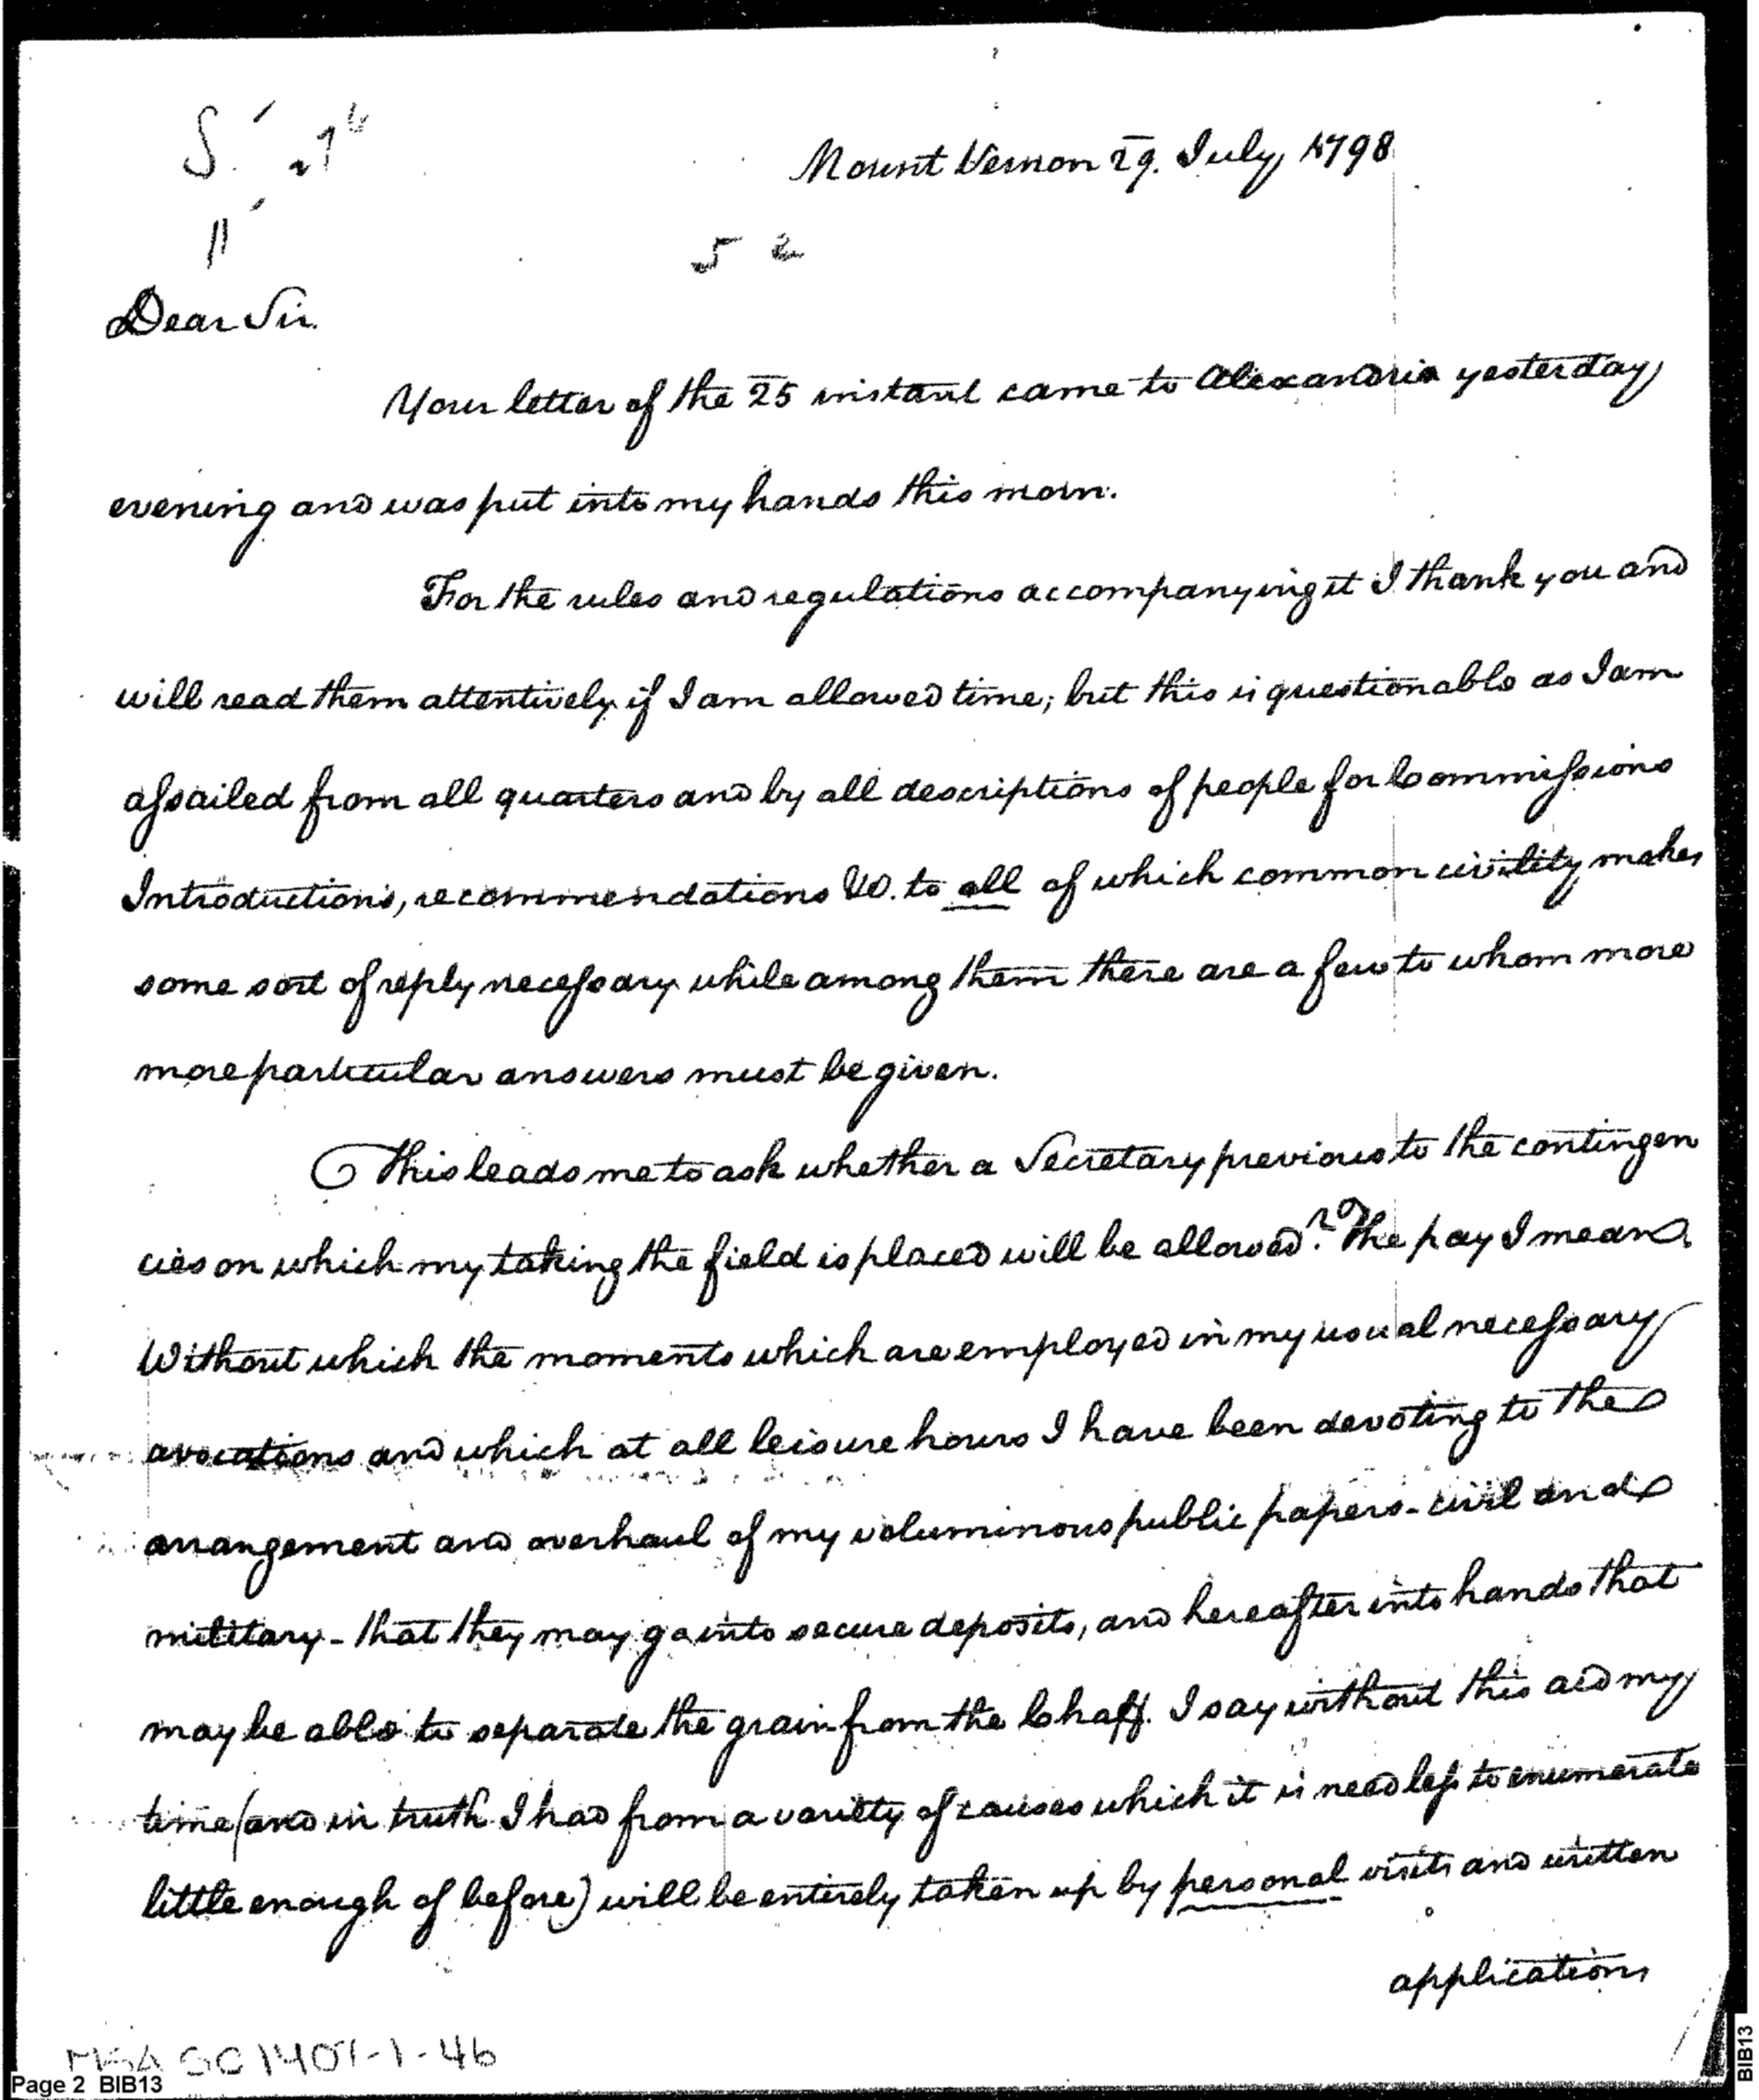 Mount Vernon 29. July, 1798
5 2
Dear Sir.
Your letter of the 25 instant came to Alexandria yesterday
evening and was put into my hands this morn.
For the rules and regulations accompanying it I thank you and
will read them attentively if I am allowed time; but this is questionable as I am
assailed from all quarters and by all descriptions of people for Commissions
Introductions, recommendations &c. to all of which common civility makes
some sort of reply necessary while among them there are a few to whom more
more particular answers must be given.
This leads me to ask whether a Secretary previous to the contingen
cies on which my taking the field is placed will be allowed? The pay I mean.
Without which the moments which are employed in my usual necessary
avocations and which at all leisure hours I have been devoting to the
arrangement and overhaul of my voluminous public papers - civil and
military - that they may go into secure deposits, and hereafter into hands that
may be able to separate the grain from the Chaff. I say without this aid my
time (and in truth I had from a variety of causes which it is needless to enumerate
little enough of before) will be entirely taken up by personal visits and written
applications
MSA SC 1401-1-46
Page 2 BIB13
BIB13